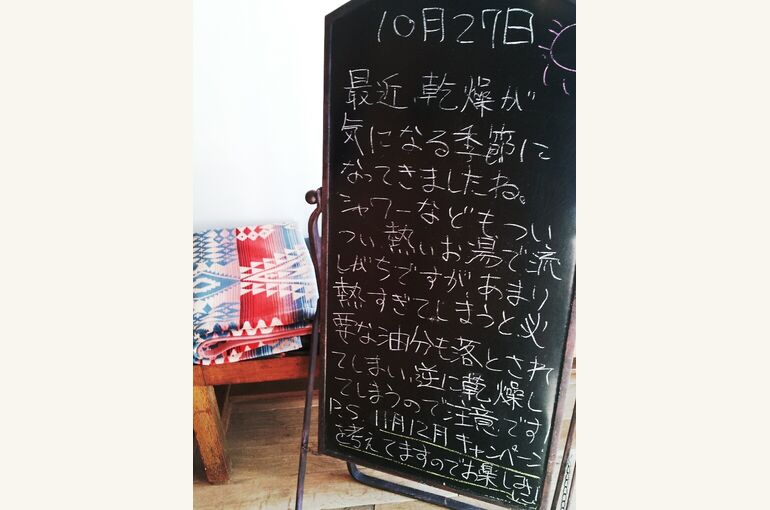 10月27日
最近、乾燥が
気になる季節に
なってきましたね。
シャワーなどもつい
つい熱いお湯で流
しがちですがあまり
熱すぎてしまうと必
要な油分も落とされ
てしまい逆に乾燥し
てしまうので注意です!
P.S. 11月12月キャンペーン
を考えてますのでお楽しみに